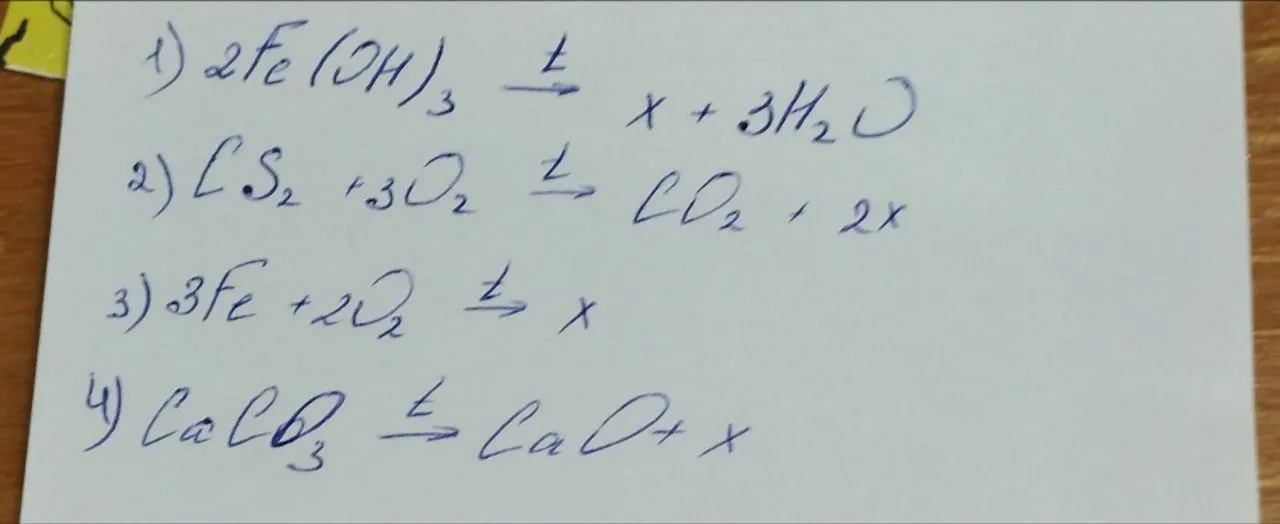 1) 2Fe(OH)₃ →ᵗ x + 3H₂O
2) CS₂ + 3O₂ →ᵗ CO₂ + 2x
3) 3Fe + 2O₂ →ᵗ x
4) CaCO₃ →ᵗ CaO + x